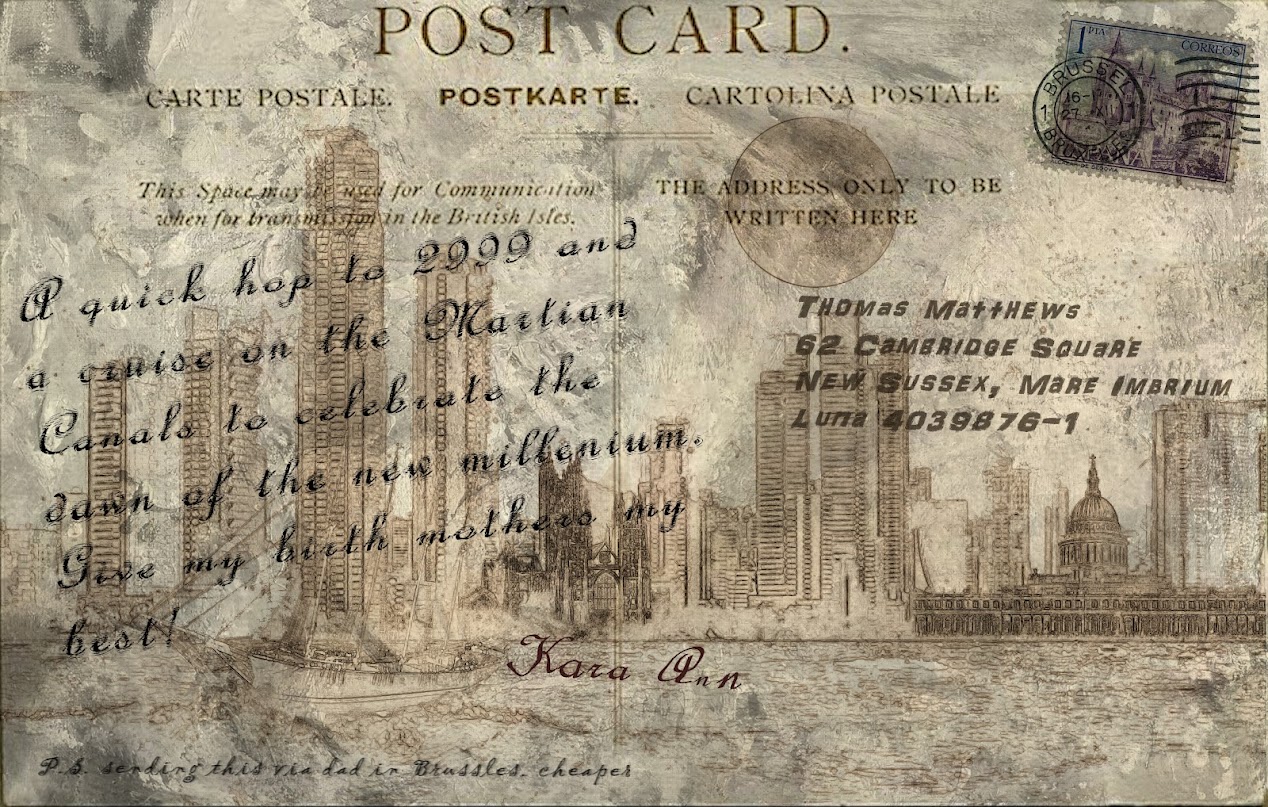 POST CARD.
CARTE POSTALE. POSTKARTE. CARTOLINA POSTALE
1 PTA CORREOS
BRUSSEL
This Space may be used for Communication
when for transmission in the British Isles.
THE ADDRESS ONLY TO BE
WRITTEN HERE
A quick hop to 2999 and
a cruise on the Martian
Canals to celebrate the
dawn of the new millenium.
Give my birth mothers my
best!
Kara Ann
Thomas Matthews
62 Cambridge Square
New Sussex, Mare Imbrium
Luna 4039876-1
P.S. sending this via dad in Brussles. cheaper